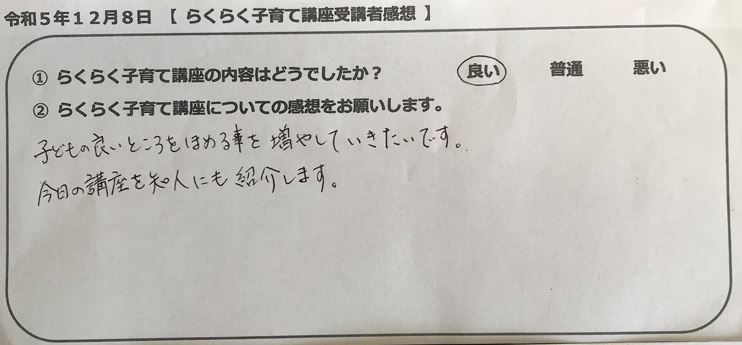 令和５年１２月８日 【 らくらく子育て講座受講者感想 】
① らくらく子育て講座の内容はどうでしたか？ 良い 普通 悪い
② らくらく子育て講座についての感想をお願いします。
子どもの良いところをほめる事を増やしていきたいです。
今日の講座を知人にも紹介します。